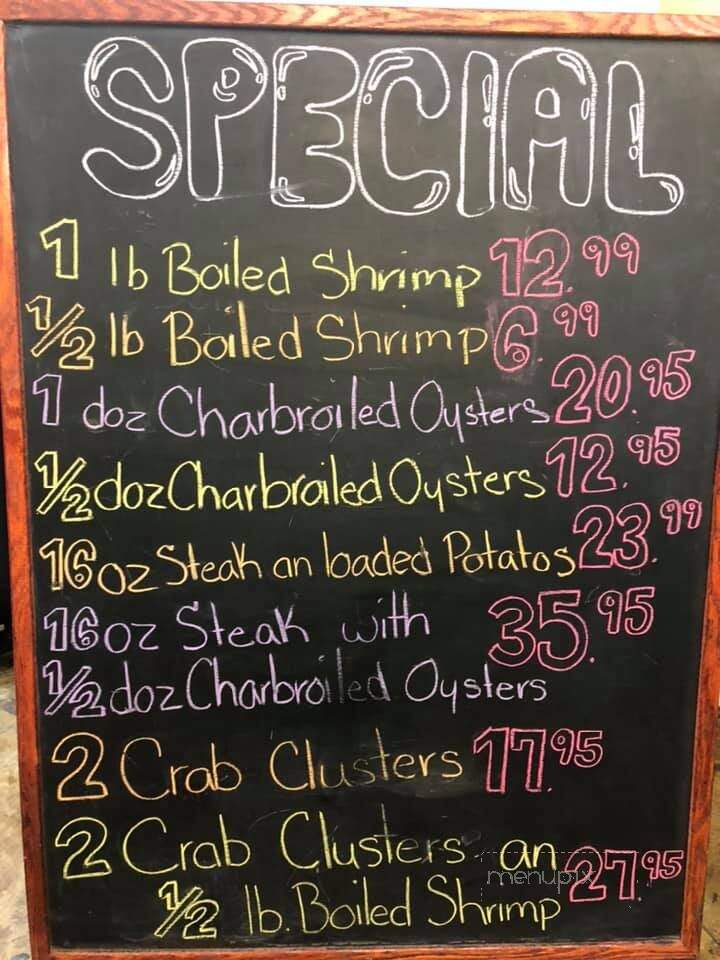 SPECIAL
1 lb Boiled Shrimp 12.99
1/2 lb Boiled Shrimp 6.99
1 doz Charbroiled Oysters 20.95
1/2 doz Charbroiled Oysters 12.95
16 oz Steak an loaded Potatos 23.99
16 oz Steak with 35.95
1/2 doz Charbroiled Oysters
2 Crab Clusters 17.95
2 Crab Clusters an 27.95
menupix
1/2 lb. Boiled Shrimp